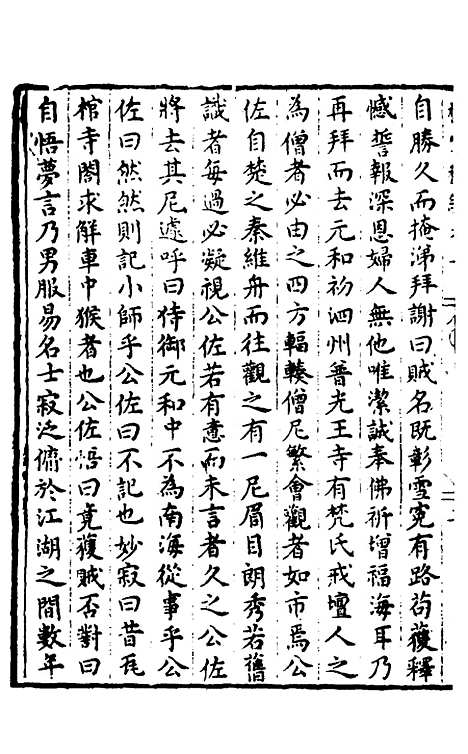 自勝久而掩涕拜謝曰賊名既彰雪寃有路苟獲釋
憾誓報深恩婦人無他唯潔誠奉佛祈增福海耳乃
再拜而去元和初泗州普光王寺有梵氏戒壇人之
為僧者必由之四方輻輳僧尼繁會觀者如市焉公
佐自楚之秦維舟而往觀之有一尼眉目朗秀若舊
識者每過必凝視公佐若有意而未言者久之公佐
將去其尼遽呼曰侍御元和中不為南海從事乎公
佐曰然然則記小師乎公佐曰不記也妙寂曰昔瓦
棺寺閣求解車中猴者也公佐悟曰竟獲賊否對曰
自悟夢言乃男服易名士寂泛傭於江湖之間數年